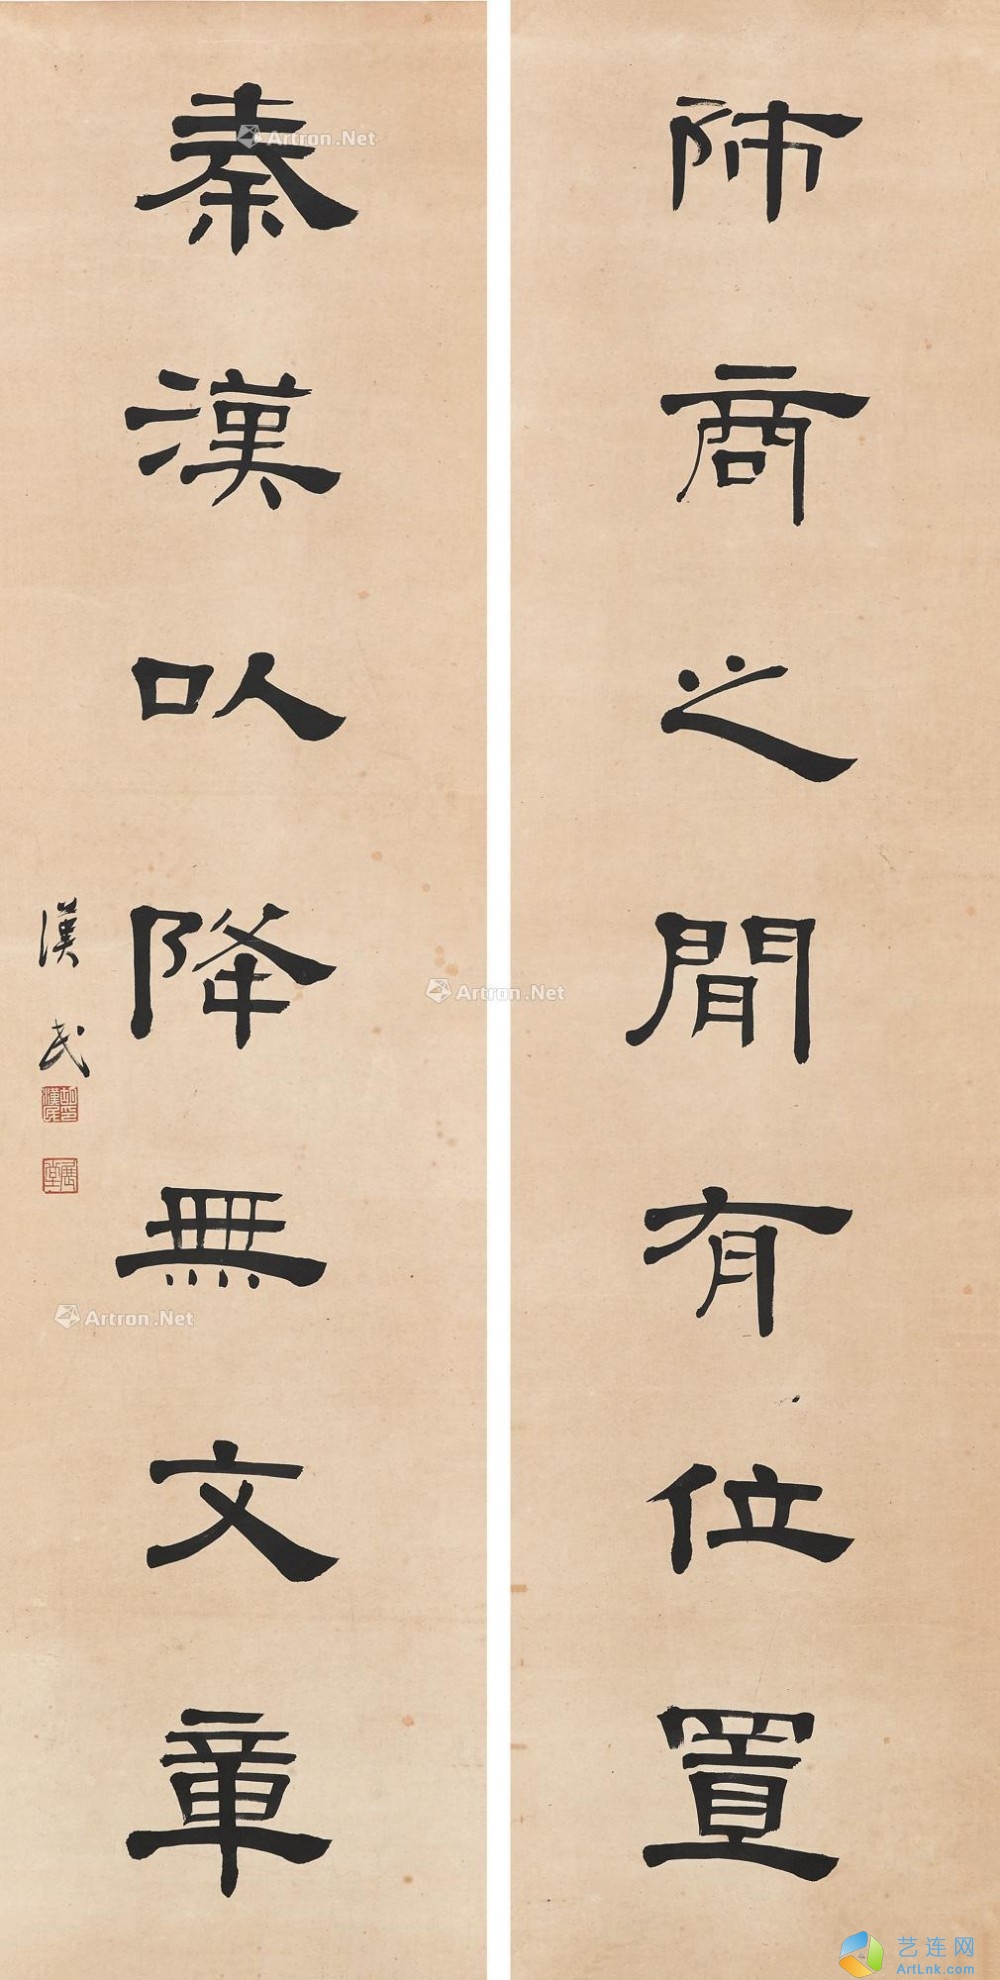 師商之間有位置
秦漢以降無文章
漢民
胡漢民印
展堂
Artron.Net
Artron.Net
Artron.Net
艺连网
ArtLnk.com